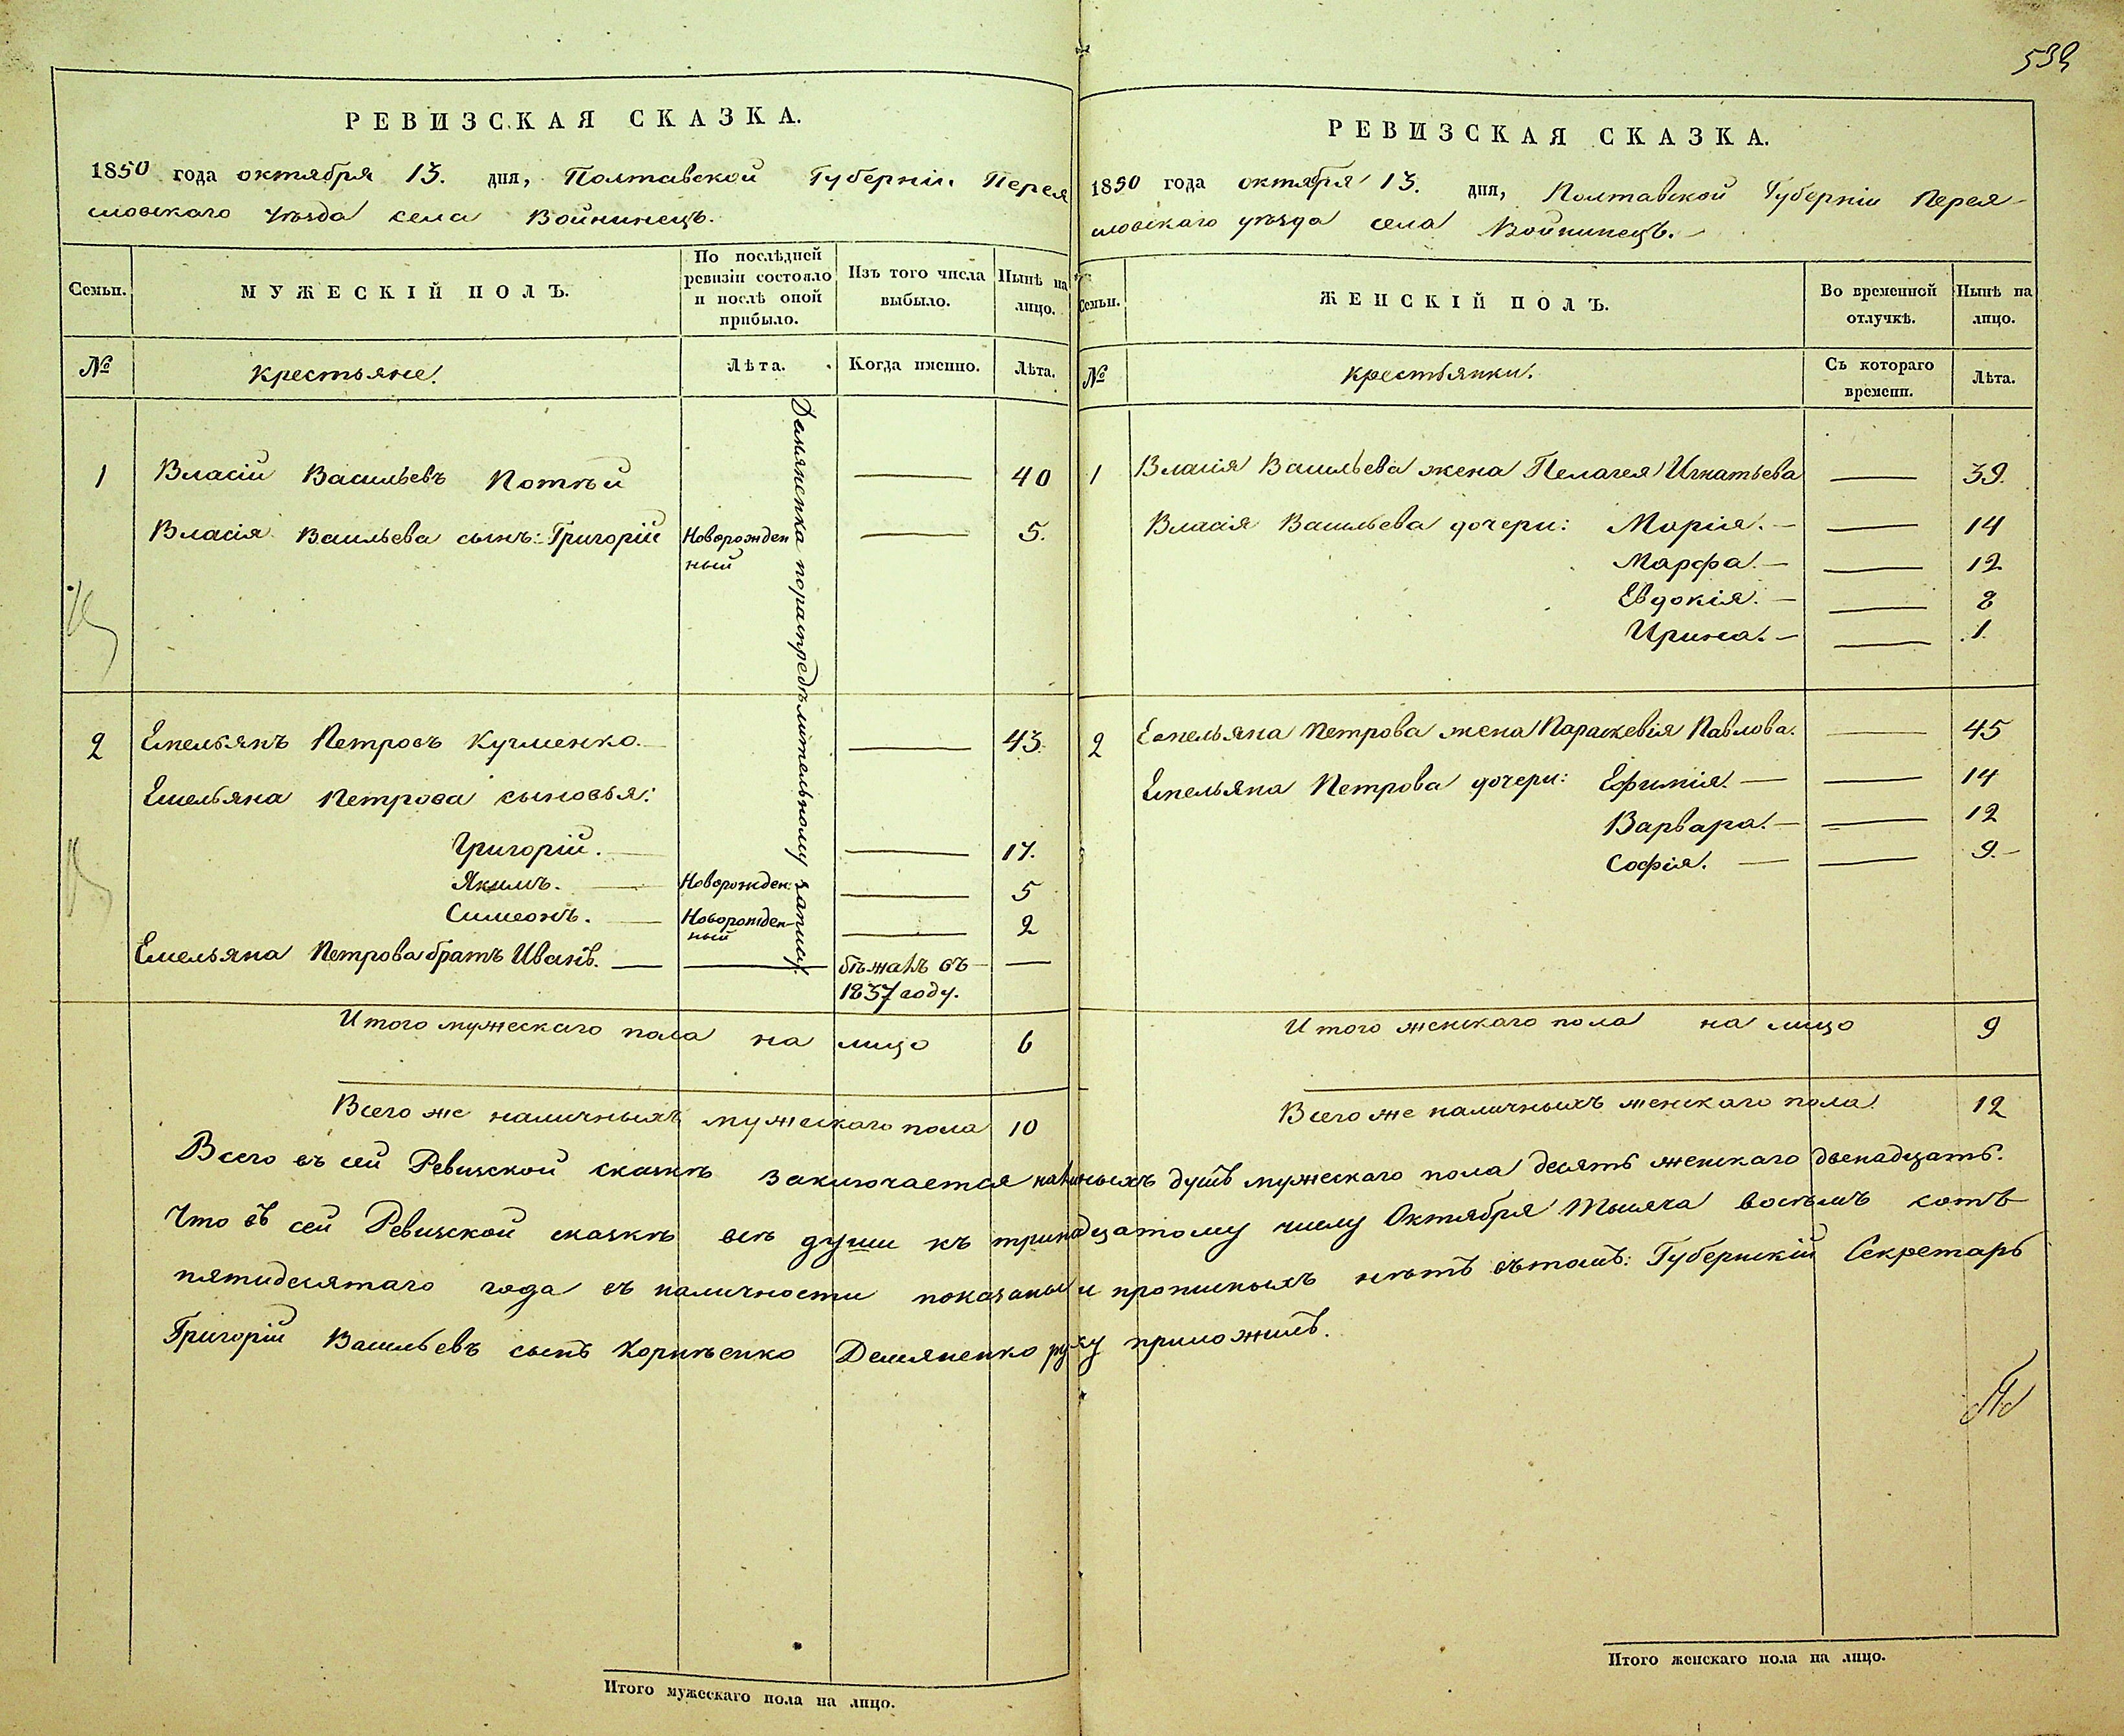 539
РЕВИЗСКАЯ СКАЗКА.
1850 года октября 13. дня, Полтавской Губерніи Перея
словскаго уѣзда села Войнинецъ.
Семьи.
МУЖЕСКІЙ ПОЛЪ.
По послѣдней
ревизіи состояло
и послѣ оной
прибыло.
Изъ того числа
выбыло.
Нынѣ на
лицо.
№
крестьяне.
Лѣта.
Когда именно.
Лѣта.
1 Власій Васильевъ Потѣй 40
Власія Васильева сынъ: Григорій Новорожден 5.
ный
Демяненка
записи.
2 Емельянъ Петровъ Кучменко. 43.
Емельяна Петрова сыновья:
Григорій. 17.
Якимъ. Новорожден: 5
Симеонъ. Новорожден- 2
ный
Емельяна Петрова братъ Иванъ. бѣжалъ въ
1837 году.
Итого мужескаго пола на лицо 6
Всего же наличныхъ мужескаго пола 10
РЕВИЗСКАЯ СКАЗКА.
1850 года октября 13. дня, Полтавской Губерніи Перея-
словскаго уѣзда села Войнинецъ.
Семьи.
ЖЕНСКІЙ ПОЛЪ.
Во временной
отлучкѣ.
Нынѣ на
лицо.
№
крестьянки.
Съ котораго
времени.
Лѣта.
1 Власія Васильева жена Пелагея Игнатьева 39.
Власія Васильева дочери: Марія. 14
Марфа. 12
Евдокія. 8
Ирина. 1.
2 Емельяна Петрова жена Параскевія Павлова. 45
Емельяна Петрова дочери: Ефимія. 14
Варвара. 12
Софія. 9.
Итого женскаго пола на лицо 9
Всего же наличныхъ женскаго пола. 12
Всего въ сей Ревизской сказкѣ заключается наличныхъ душъ мужескаго пола десять женскаго двенадцать.
Что въ сей Ревизской сказкѣ всѣ души къ тринадцатому числу Октября Тысяча восѣмъ сотъ
пятидесятаго года въ наличности показаны и прописныхъ нѣтъ въ томъ: Губернскій Секретарь
Григорій Васильевъ сынъ Корнѣенко Демяненко руку приложилъ.
Итого мужескаго пола на лицо.
Итого женскаго пола на лицо.